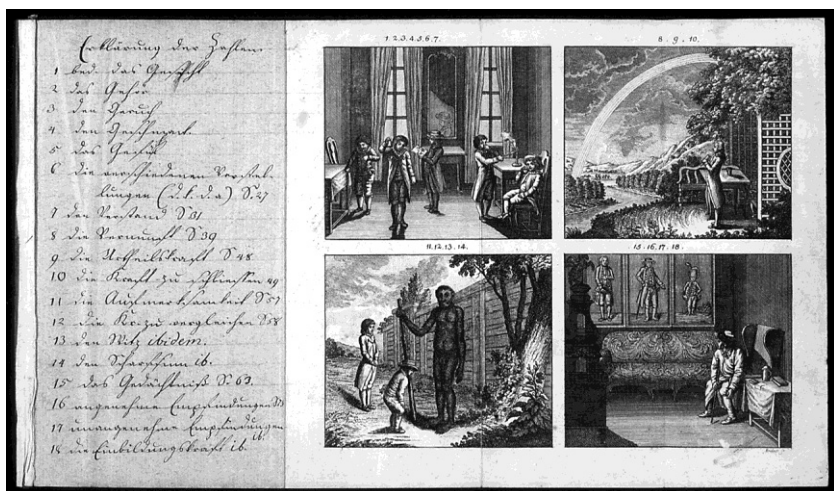 Erklärung der Zahlen.
1 bed. das Gesicht
2 das Gehör
3 den Geruch
4 den Geschmack
5 das Gefühl
6 die verschiedenen Vorstel-
lungen (d.k.d.a) S. 27
7 den Verstand S 31
8 die Vernunft S 39
9 die Urtheilskraft S 48
10 die Kraft zu schliessen 49
11 die Aufmerksamkeit S 57
12 die Kr. zu vergleichen S 58
13 den Witz ibidem.
14 den Scharfsinn ib.
15 das Gedächtniß S. 63.
16 angenehme Empfindungen
17 unangenehme Empfindungen
ib.
18 die Einbildungskraft ib.
1.2.3.4.5.6.7.
8.9.10.
11.12.13.14.
15.16.17.18.